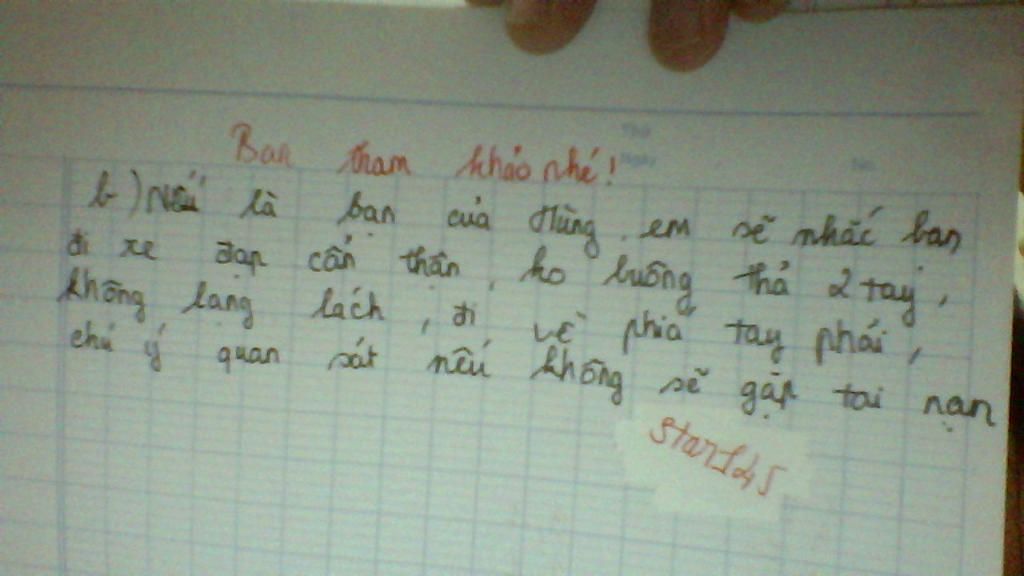 Bạn tham khảo nhé!
b) Nếu là bạn của Hùng, em sẽ nhắc bạn
đi xe đạp cẩn thận, ko buông thả 2 tay,
không lạng lách, đi về phía tay phải,
chú ý quan sát nếu không sẽ gặp tai nạn